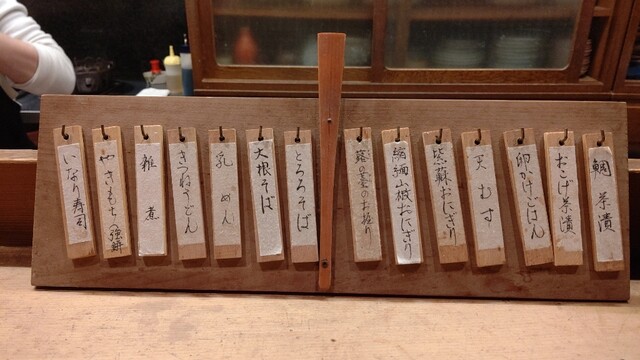 鯛茶漬
おこげ茶漬
卵かけごはん
天むす
紫蘇おにぎり
山椒おにぎり
蕗の薹のお握り
とろろそば
大根そば
乳めん
きつねうどん
雑煮
やきもち
いなり寿司